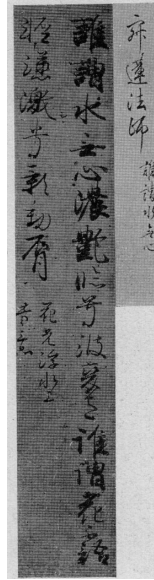 寂蓮法師 誰謂水無心
誰謂水無心濃艷臨兮波變色誰謂花不語
輕漾激兮影動脣 花光浮水上
菅三品